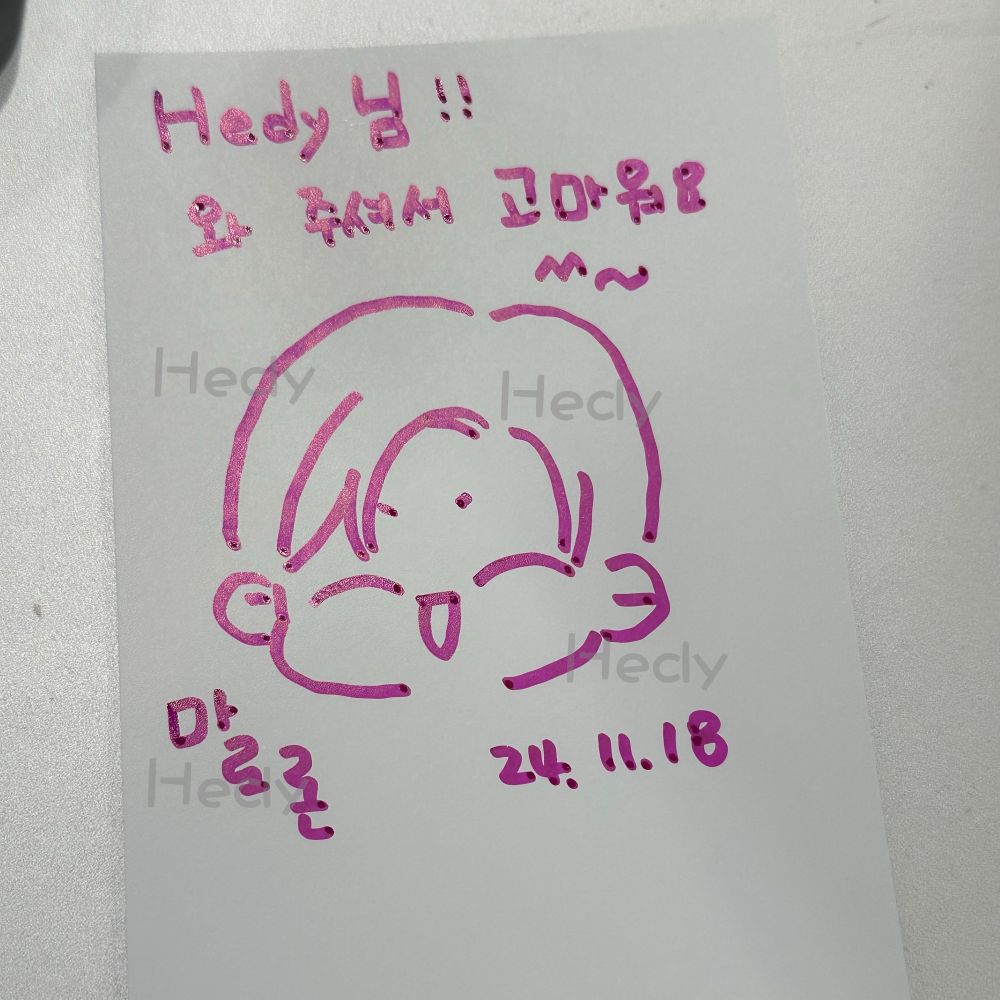 Hedy님!!
와 주셔서 고마워요
ㅆ~
Hedy
Hedy
Hedy
말론
24.11.18
Hedy